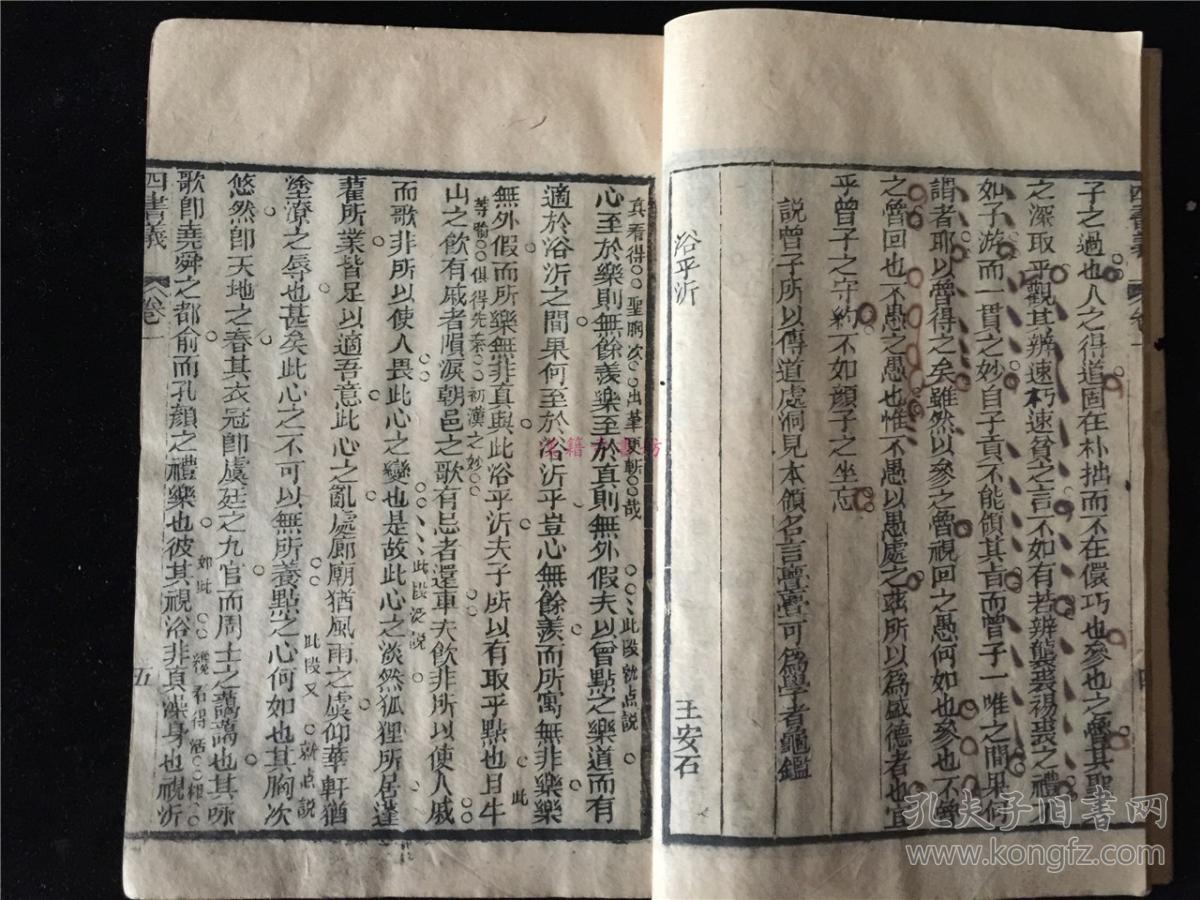 子之過也人之得道固在朴拙而不在儇巧也參也之魯其聖
之深取乎觀其辨速朽速貧之言不如有若辨襲裘裼裘之禮
如子游而一貫之妙自子貢不能領其旨而曾子一唯之間果何
謂者耶以魯得之矣雖然以參之魯視回之愚何如也參也不魯
之魯回也不愚之愚也惟不愚以愚處之茲所以為盛德者也宜
乎曾子之守約不如顏子之坐忘
說曾子所以傳道處洞見本領名言亹亹可為學者龜鑑
浴乎沂 王安石
真看得聖胸次出筆更斬哉 此段就点說
心至於樂則無餘羨樂至於真則無外假夫以曾點之樂道而有
適於浴沂之間果何至於浴沂乎豈心無餘羨而所寓無非樂樂
無外假而所樂無非真與此浴乎沂夫子所以有取乎點也且牛
等喻俱得先秦初漢之妙 此
山之飲有戚者隕淚朝邑之歌有忌者還車夫飲非所以使人戚
而歌非所以使人畏此心之變也是故此心之淡然狐狸所居蓬
此段泛說
藋所業皆足以適吾意此心之亂處廊廟猶風雨之虞仰華軒猶
塗潦之辱也甚矣此心之不可以無所養點之心何如也其胸次
此段又就点說
悠然即天地之春其衣冠即虞廷之九官而周士之藹藹也其咏
歌即堯舜之都俞而孔顏之禮樂也彼其視浴非真澡身也視沂
如此 看得活
四書義 卷一 五
孔夫子旧书网
www.kongfz.com